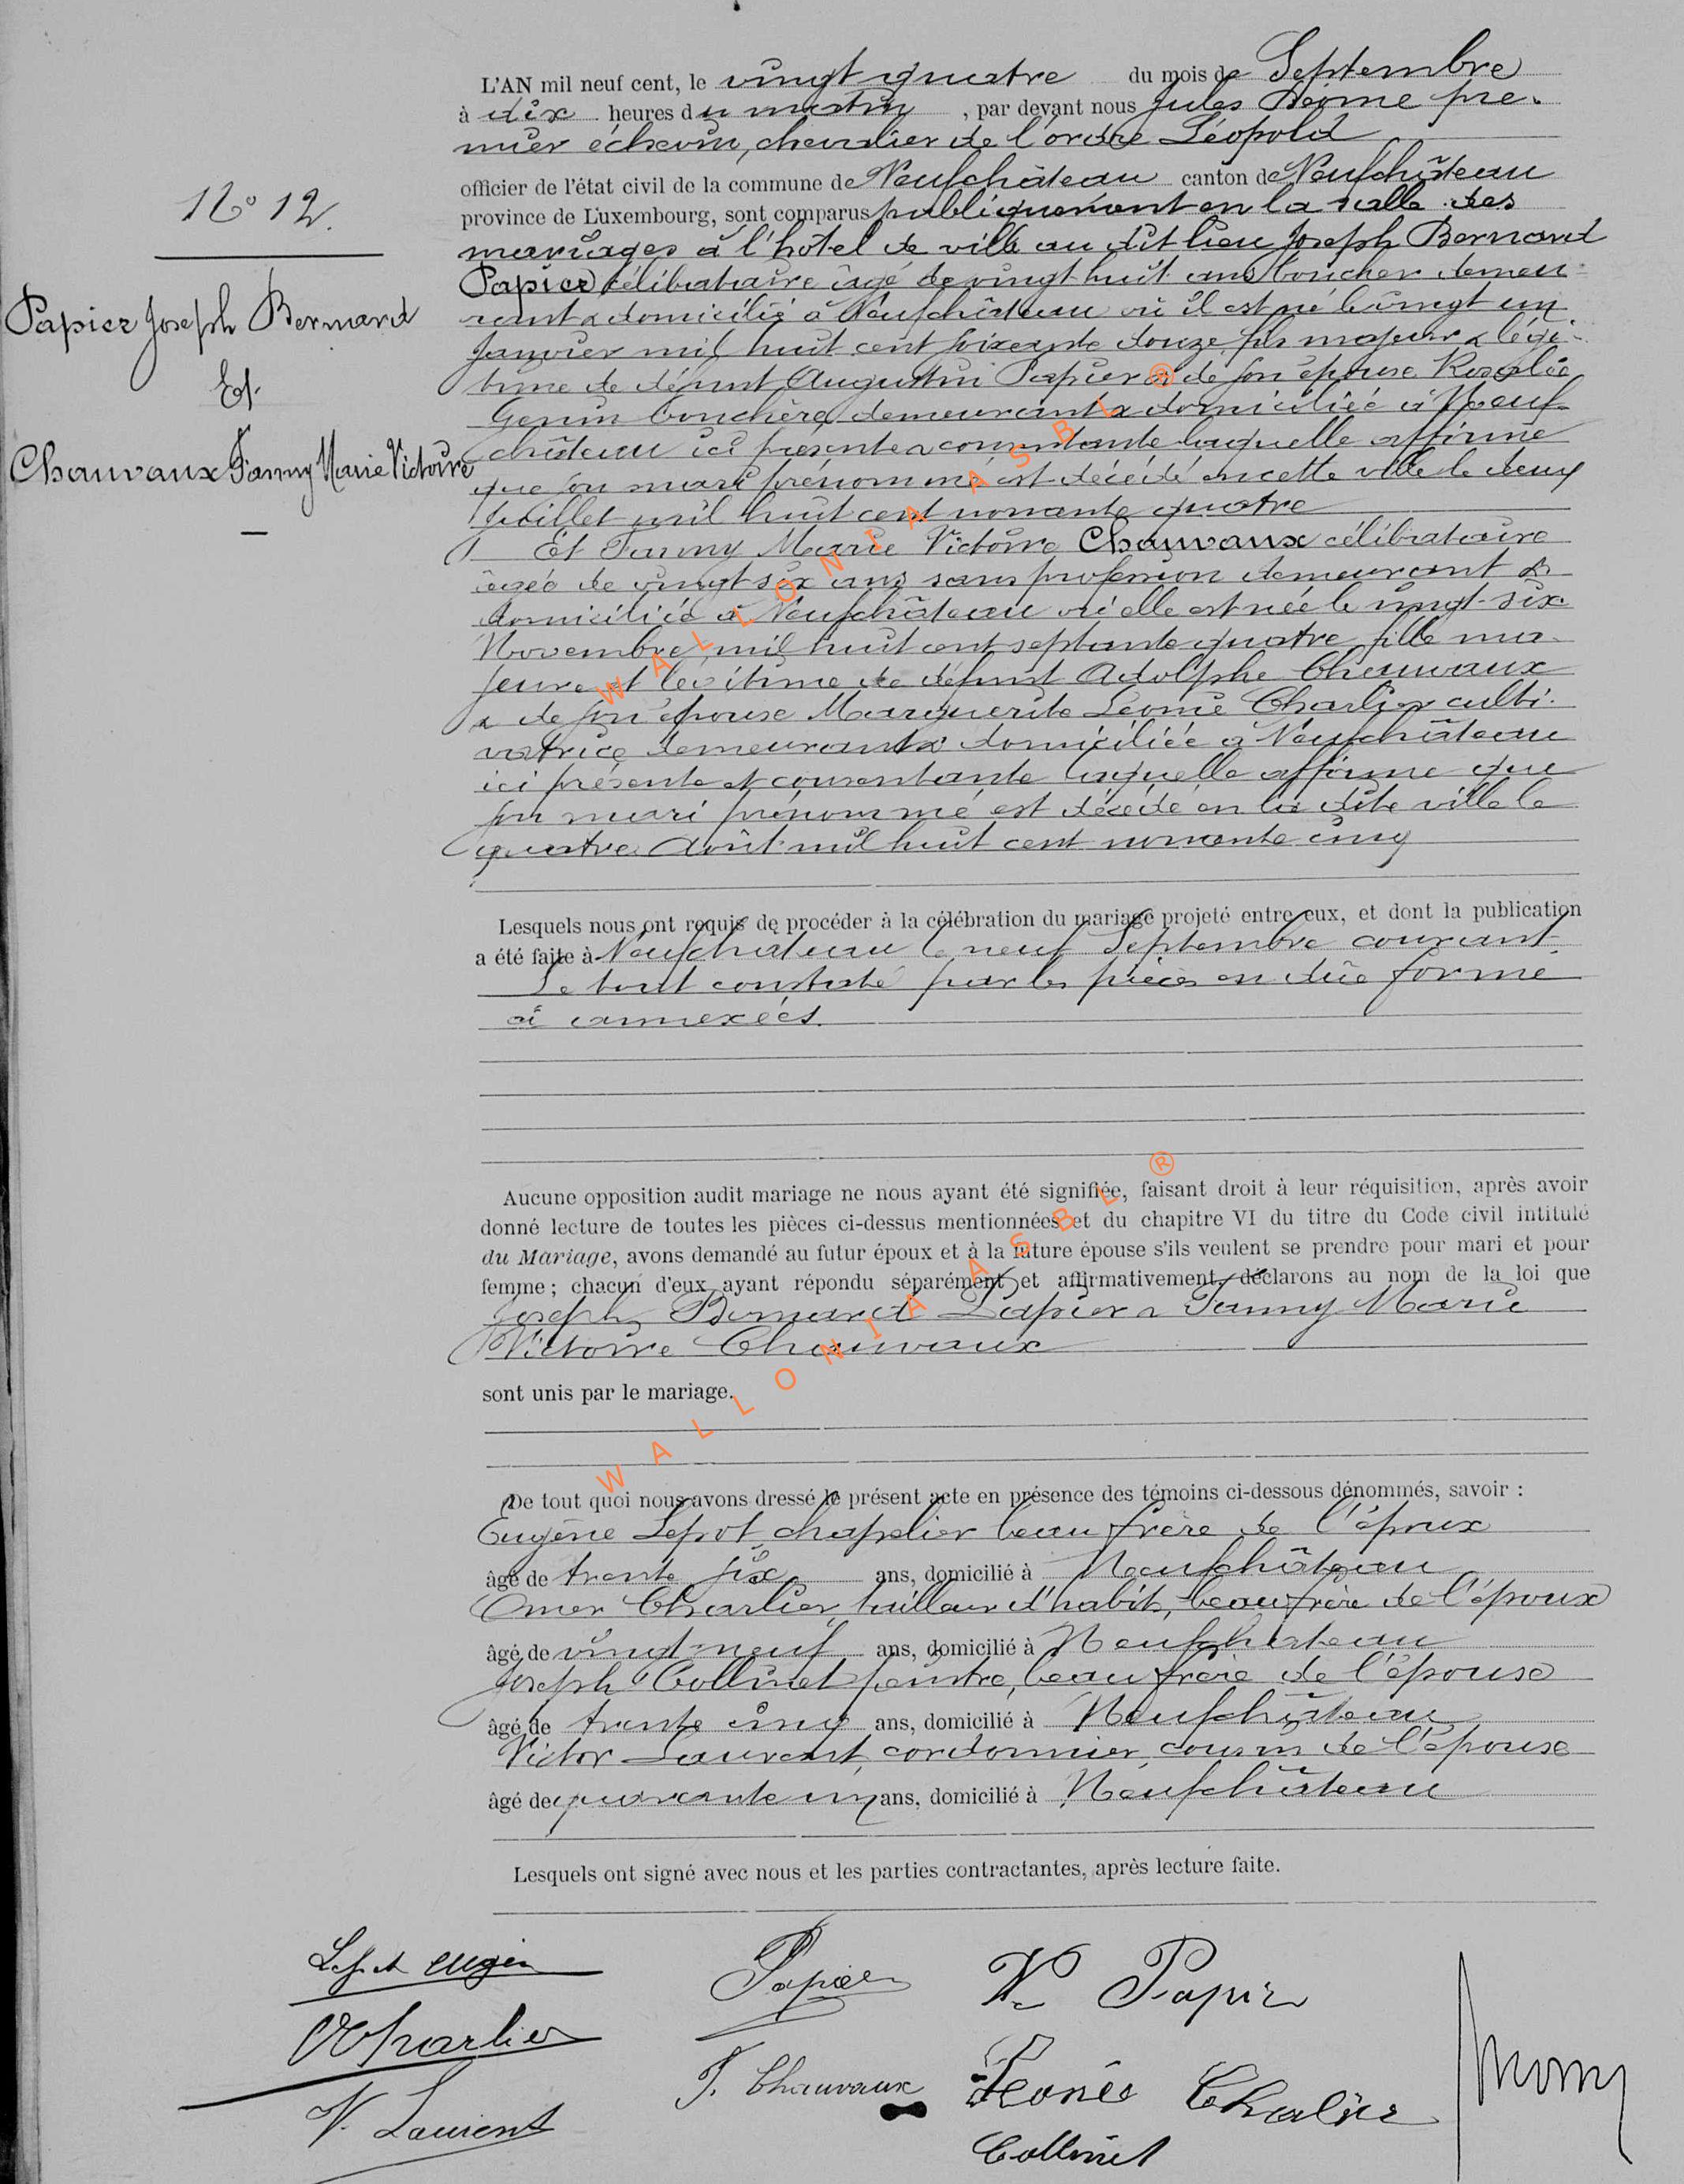 L'AN mil neuf cent, le vingt quatre du mois de Septembre
à dix heures du matin, par devant nous Jules pre-
mier échevin, chevalier de l'ordre Léopold
officier de l'état civil de la commune de Neufchâteau canton de Neufchâteau
province de Luxembourg, sont comparus publiquement en la salle des
mariages à l'hôtel de ville au dit lieu Joseph Bernard
Papier célibataire âgé de vingt huit ans boucher demeu
rant & domicilié à Neufchâteau où il est né le vingt un
Janvier mil huit cent soixante douze fils majeur & légi-
time de défunt Augustin Papier & de son épouse Rosalie
Genin bouchère demeurant & domiciliée à Neuf-
château ici présente & consentante laquelle affirme
que son mari prénommé est décédé en cette ville le deux
Juillet mil huit cent nonante quatre
Et Fanny Marie Victoire Chauvaux célibataire
âgée de vingt six ans sans profession demeurant &
domiciliée à Neufchâteau où elle est née le vingt-six
Novembre mil huit cent septante quatre fille ma-
jeure et légitime de défunt Adolphe Chauvaux
& de son épouse Marguerite Léonie Charlier culti-
vatrice demeurant & domiciliée à Neufchâteau
ici présente et consentante laquelle affirme que
son mari prénommé est décédé en la dite ville le
quatre Août mil huit cent nonante cinq
N° 12.
Papier Joseph Bernard
Et
Chauvaux Fanny Marie Victoire
Lesquels nous ont requis de procéder à la célébration du mariage projeté entre eux, et dont la publication
a été faite à Neufchâteau le neuf Septembre courant.
Le tout constaté par les pièces en due forme
ci annexées.
Aucune opposition audit mariage ne nous ayant été signifiée, faisant droit à leur réquisition, après avoir
donné lecture de toutes les pièces ci-dessus mentionnées et du chapitre VI du titre du Code civil intitulé
du Mariage, avons demandé au futur époux et à la future épouse s'ils veulent se prendre pour mari et pour
femme ; chacun d'eux ayant répondu séparément et affirmativement, déclarons au nom de la loi que
Joseph Bernard Papier & Fanny Marie
Victoire Chauvaux
sont unis par le mariage.
De tout quoi nous avons dressé le présent acte en présence des témoins ci-dessous dénommés, savoir :
Eugène Lepot chapelier beau frère de l'époux
âgé de trente six ans, domicilié à Neufchâteau
Omer Charlier, tailleur d'habits, beau frère de l'époux
âgé de vingt-neuf ans, domicilié à Neufchâteau
Joseph Collinet peintre, beau frère de l'épouse
âgé de trente cinq ans, domicilié à Neufchâteau
Victor Laurent, cordonnier, cousin de l'épouse
âgé de quarante un ans, domicilié à Neufchâteau
Lesquels ont signé avec nous et les parties contractantes, après lecture faite.
Lepot Eugène
Papier
Ve Papier
OCharlier
F. Chauvaux
Léonie Charlier
V. Laurent
Collinet
WALLONIA ASBL ®
WALLONIA ASBL ®